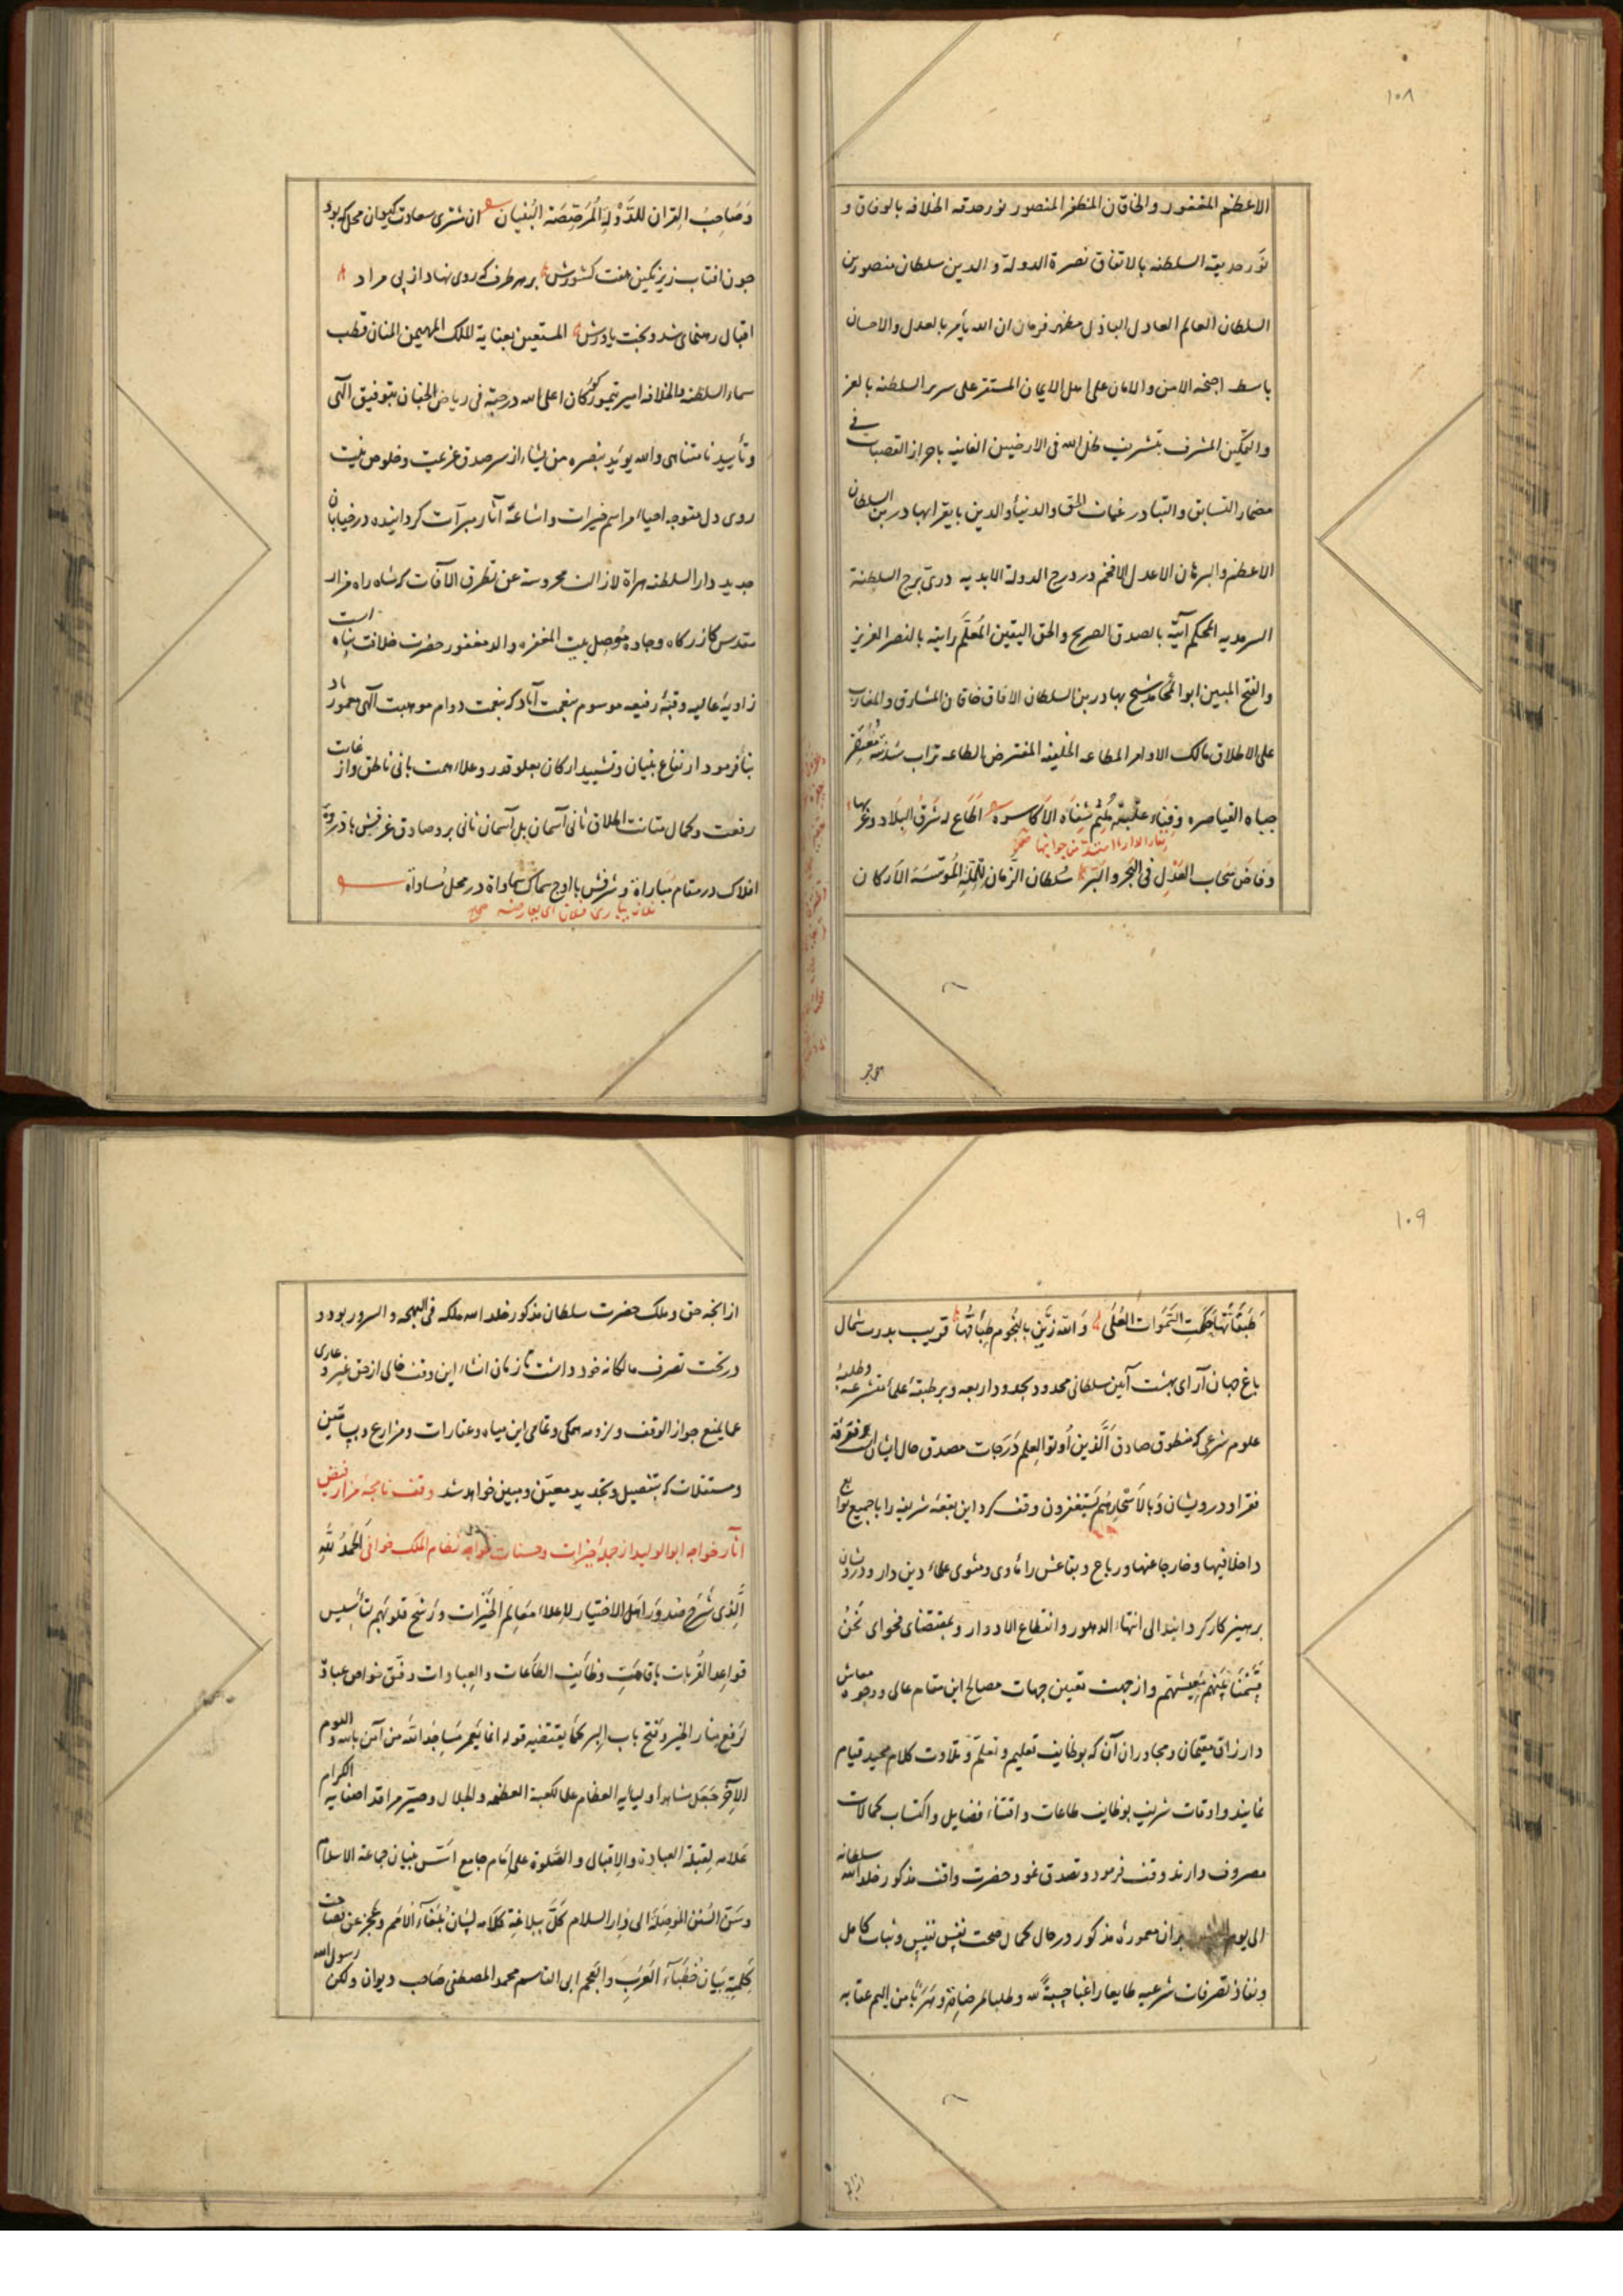 ۱۰۸
الاعظم المغفور والخاقان المظفر المنصور نور حدقه الخلافه بالوفاق و
نور حدیقه السلطنه بالاتفاق نصرة الدولة و الدین سلطان منصور بن
السلطان العالم العادل الباذل مظهر فرمان ان الله یأمر بالعدل والاحسان
باسط اجنحه الامن والامان علی اهل الایمان المستقر علی سریر السلطنه بالعز
والتمکین المشرف بتشریف ظل الله فی الارضین الغانیه باحراز القصبات فی
مضمار التسابق والتبادر غیاث الحق والدنیا والدین بایقرا بهادر بن السلطان
الاعظم والبرهان الاعدل الافخم در درج الدولة الابدیه دری برج السلطنة
السرمدیه المحکم آیته بالصدق الصریح والحق الیقین المُعلَّم رایته بالنصر العزیز
والفتح المبین ابو المحامد شیخ بهادر بن السلطان الافاق خاقان المشارق والمغارب
علی الاطلاق مالک الاوامر المطاعه الخلیفه المفترض الطاعه تراب سُدّته مُعَفّر
جباه القیاصره وفِنَاء عتبته مُلثم شِفَاه الاَکاسره اَطَاعَ له شَرقُ البِلَاد وغربها
وفَاضَ سَحَاب العَدْلِ فی البَحر والبَرّ سُلطان الزّمان لِلمِلّةِ المُؤَسّسَة الاَرکان
وَصَاحِبُ القِران للدَّوْلَةِ المُرَصَّصَة البُنیان ان مشتری سعادت کیوان محل که بود
جون افتاب زیر نکین هفت کشورش بر هر طرف که روی نهاد از پی مراد
اقبال رهنمای شد و بخت یاورش المستعین بعنایة الملک المهیمن المنان قطب
سماء السلطنه والخلافه امیر تیمور کورکان اعلی الله درجته فی ریاض الجنان بتوفیق الهی
وتأیید نامتناهی والله یؤید بنصره من یشاء از سر صدق عزیمت وخلوص نیت
روی دل متوجه احیاء مراسم خیرات واشاعة آثار مبرّات کردانیده در خیابان
جدید دار السلطنه هراة لازالت محروسة عن تطرق الآفات که شاه راه مزار
مقدس کازرکاه وجاده مُوصِل بیت المغفره والد مغفور حضرت خلافت پناه است
زاویۀ عالیه وقبۀ رفیعه موسوم بنعمت آباد که بنعمت دوام موهبت الهی معمور باد
بنا فرمود ارتفاع بنیان وتشیید ارکان بعلو قدر وعلاء همت بانی ناطق واز غایت
رفعت وکمال متانت اطلاق ثانی آسمان بل آسمان ثانی برو صادق غرفش با ذروۀ
افلاک در مقام مباراة وشرفش با اوج سماک سماواة در محل مُساواة
۱۰۹
طَبَقَاتُهَا حَکَمَتِ السَّمَوات العُلَی وَ الله زَیَّنَ بالنُجوم طِبَاقُهَا قریب بدرب شمال
باغ جهان آرای بهشت آیین سلطانی محدود بحدود اربعه وبر طبقۀ علماء متشرعه وطلبۀ
علوم شرعی که منطوق صادق اَلَّذین اُوتُوا العِلم دَرَجات مصدق حال ایشان است وفرقۀ
فقرا ودرویشان وَبالاَسْحَارِ هُم یَستغفرون وقف کرد این بقعۀ شریفه را با جمیع توابع
داخلا فیها وخارجا عنها ورباع وبقاعش را مأوی ومثوی علماء دین دار ودرویشان
برهیزکار کردانید الی انتهاء الدهور وانقطاع الادوار وبمقتضای فحوای نَحْنُ
قَسَمْنَا بَیْنَهُم مَعِیشَتَهُم واز جهت تعیین جهات مصالح این مقام عالی ووجوه معاش
وارزاق مقیمان ومجاوران آن که بوظایف تعلیم وتعلّم وتلاوت کلام مجید قیام
نمایند واوقات شریف بوظایف طاعات واقتناء فضایل واکتساب کمالات
مصروف دارند وقف فرمود وتصدق نمود حضرت واقف مذکور خلد الله سلطانه
الی یوم بران معمورۀ مذکور در حال کمال صحت نفس نفیس وثبات کامل
ونفاذ تصرفات شرعیه طایعا راغبا حِسبةً لله وطلبا لمرضاته وهَرَبًا من الیم عقابه
از انجه حق وملک حضرت سلطان مذکور خلد الله ملکه فی البهجه والسرور بود و
در تحت تصرف مالکانه خود داشت تا زمان انشاء این وقف خالی از حق غیر و عاری
عما یمنع جواز الوقف ولزومه همکی وتمامی این میاه وعقارات ومزارع وبساتین
ومستغلات که بتفصیل وتحدید معین ومبین خواهد شد وقف نامجۀ مزار فیض
آثار خواجه ابو الولید از جمله خیرات وحسنات خواجه نظام الملک خوافی اَلحَمدُ لِلّٰهِ
الَّذِی شَرَحَ صُدورَ اهل الاختیار لاِعلاء مَعَالِم الخَیرات ورَشَّحَ قلوبهم تأسیس
قواعد القُرُبات باِقَامَتِ وظَایف الطَاعات والعِبادات وفّق خواص عباده
لرَفعِ منار الخیر وفتح باب البِر کما یقتضیه قوله انما یَعمر مَسَاجِدَ الله من آمن بالله والیوم
الاخِر جَعَلَ مشاهد اولیایه العظام علی الکعبة العظمه والجلال وصیّر مراقد اصفیایه الکرام
عَلَامة لقبلة العبادة والاقبال والصَّلوة علی اِمام جامع اَسَّس بنیان جماعة الاسلام
وسَنّ السُنَن المُوصِلَة الی دَار السلام کَلَّ ببلاغةِ کلَامه لِسَان بُلَغَاء الامم وعَجَزَ عن فصاحت
کَلِمته بَیَان خُطَبَاء العَرَبِ والعَجم ابی القاسم محمد المصطفی صَاحب دیوان ولکن رسول الله